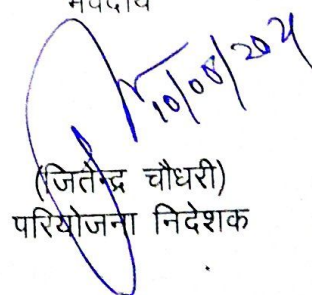 भवदीय
10/08/2021
(जितेन्द्र चौधरी)
परियोजना निदेशक